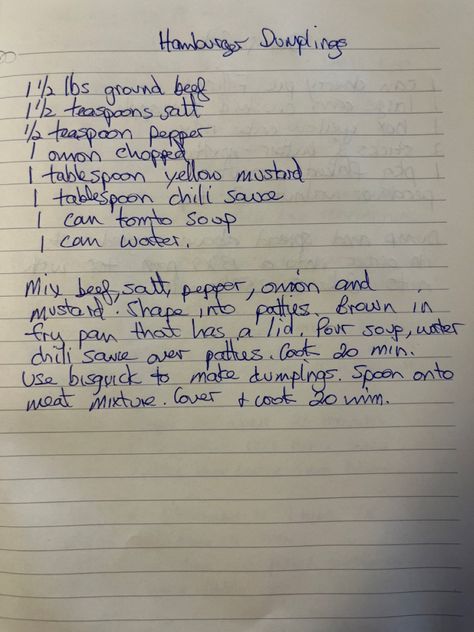 Hamburger Dumplings
1 1/2 lbs ground beef
1 1/2 teaspoons salt
1/2 teaspoon pepper
1 onion chopped
1 tablespoon yellow mustard
1 tablespoon chili sauce
1 can tomto soup
1 can water.
Mix beef, salt, pepper, onion and
mustard. Shape into patties. Brown in
fry pan that has a lid. Pour soup, water
chili sauce over patties. Cook 20 min.
Use bisquick to make dumplings. Spoon onto
meat mixture. Cover & cook 20 min.